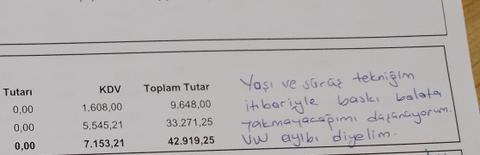 Tutarı KDV Toplam Tutar
0,00 1.608,00 9.648,00
0,00 5.545,21 33.271,25
0,00 7.153,21 42.919,25
Yaşı ve sürüş tekniğim
itibariyle baskı balata
yakmayacağımı düşünüyorum.
VW ayıbı diyelim.